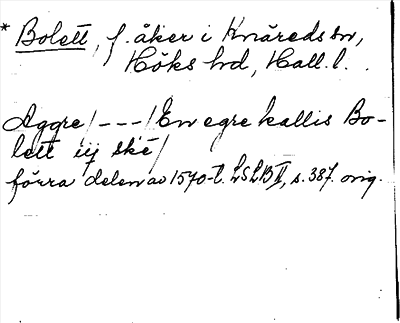 * Bolett, f. åker i Knäreds sn,
Höks hd, Hall. l.
Aggre/---/En egre kallis Bo-
lett iij ske/
förra delen av 1570-t. LSLB II, s. 387. orig.